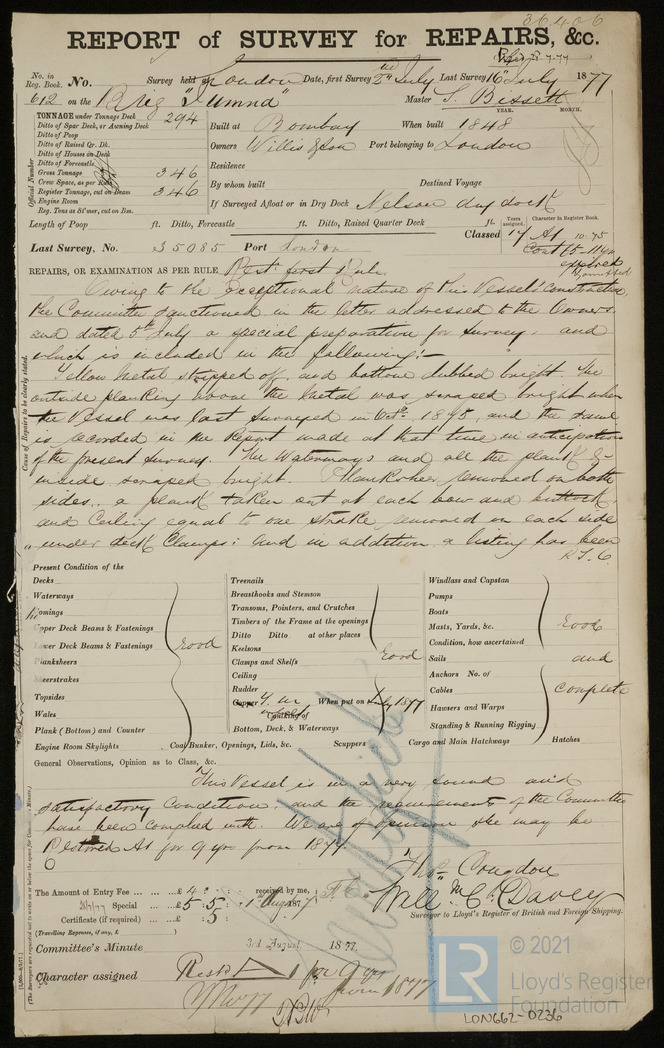 36406
REPORT of SURVEY for REPAIRS, &c.
No. in Reg. Book. No. Survey held at London Date, first Survey 2nd July Last Survey 16th July 1877
612 on the Brig "Jumna" Master S. Bissett
TONNAGE under Tonnage Deck 294
Ditto of Spar Deck, or Awning Deck
Ditto of Poop
Ditto of Raised Qr. Dk.
Ditto of Houses on Deck
Ditto of Forecastle
Gross Tonnage 346
Crew Space, as per Rule
Register Tonnage, cut on Beam 346
Engine Room
Reg. Tons as St'mer, cut on Bm.
Official Number
YEAR. MONTH.
Built at Bombay When built 1848
Owners Willis & Son Port belonging to London
Residence
By whom built Destined Voyage
If Surveyed Afloat or in Dry Dock Nelson dry dock
Length of Poop ft. Ditto, Forecastle ft. Ditto, Raised Quarter Deck ft.
Years assigned. Character in Register Book.
Classed 17 A1 10.75
Last Survey, No. 35085 Port London
Cont 75-11
expired
REPAIRS, OR EXAMINATION AS PER RULE Rest. first Rule
Cause of Repairs to be clearly stated.
Owing to the exceptional nature of this Vessel's construction,
the Committee sanctioned in the letter addressed to the Owners
and dated 5th July a special preparation for survey, and
which is included in the following:-
Yellow Metal stripped off, and bottom dubbed bright. The
outside planking above the metal was scraped bright when
the Vessel was last surveyed in Octr. and the same
is recorded in the Report made at that time in anticipation
of the present survey. The Waterways and all the plank &c
inside scraped bright. Planksheer removed on both
sides, a plank taken out at each bow and buttock,
and Ceiling equal to one strake removed on each side
under deck Clamps: and in addition a listing has been
Present Condition of the
Decks
Waterways
Comings
Upper Deck Beams & Fastenings
Lower Deck Beams & Fastenings
Planksheers
Sheerstrakes
Topsides
Wales
Plank (Bottom) and Counter
Good
Treenails
Breasthooks and Stemson
Transoms, Pointers, and Crutches
Timbers of the Frame at the openings
Ditto Ditto at other places
Keelsons
Clamps and Shelfs
Ceiling
Rudder
Copper Y. M When put on July 1877
Caulking of
Bottom, Deck, & Waterways
Good
Windlass and Capstan
Pumps
Boats
Masts, Yards, &c.
Condition, how ascertained
Sails
Anchors No. of
Cables
Hawsers and Warps
Standing & Running Rigging
Good
and
Complete
Engine Room Skylights Coal Bunker, Openings, Lids, &c. Scuppers Cargo and Main Hatchways Hatches
General Observations, Opinion as to Class, &c.
This Vessel is in a very sound and
satisfactory condition and the requirements of the Committee
have been complied with. We are of opinion she may be
Restored A1 for 9 yrs from 1877.
Thos. Congdon
The Amount of Entry Fee £ 4 : : received by me,
Special £ 5 : 5 : 1st Augt 1877
Certificate (if required) : 5 :
(Travelling Expenses, if any, £ )
Surveyor to Lloyd's Register of British and Foreign Shipping.
Committee's Minute 3rd August 1877.
Character assigned Restd A1 for 9 yrs
from 1877
LR
© 2021
Lloyd's Register
Foundation
LON662-0236